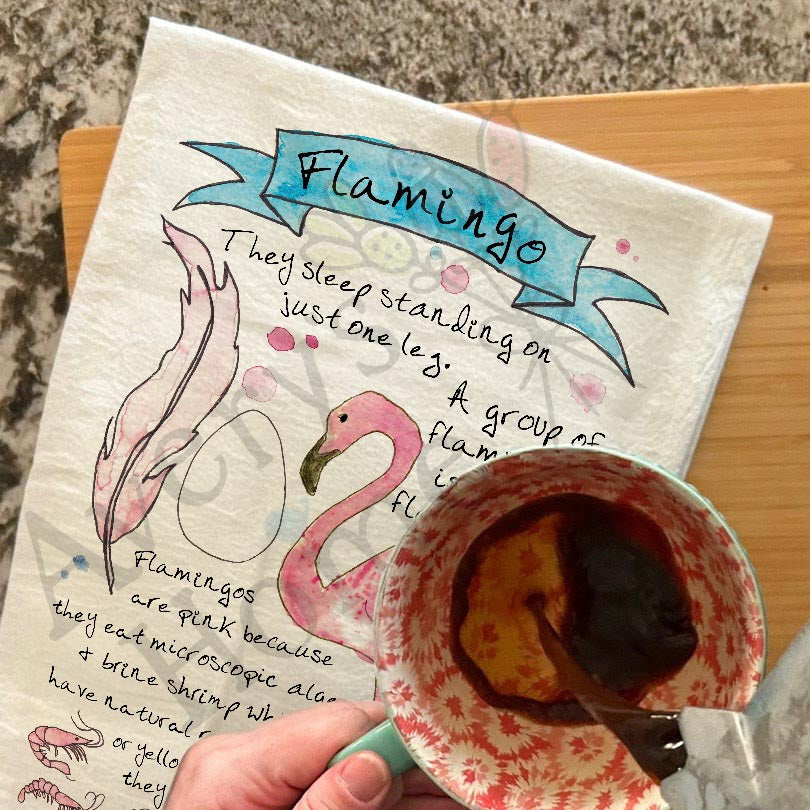 Flamingo
They sleep standing on
just one leg.
A group of
Flamingos
are pink because
they eat microscopic alae
& brine shrimp
have natural
or yello
they
Avery's
Home